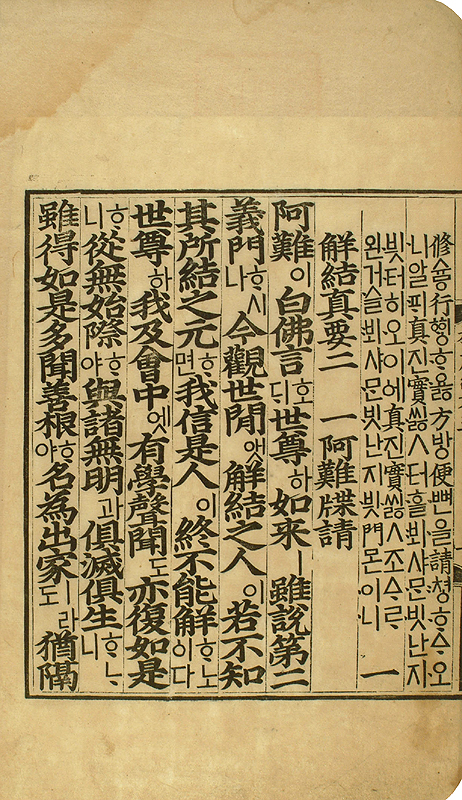 修슈ᇢ行ᄒᆡᇰᄒᆞ욣方바ᇰ便뼌을請쳐ᇰᄒᆞᅀᆞ오
니알ᄑᆡᆺ真진實씨ᇙㅅ터흘뵈샤ᄆᆞᆫ빗난지
빗터히오이에真진實씨ᇙㅅ조ᅀᆞᄅᆞ
왼거슬뵈샤ᄆᆞᆫ빗난지빗門몬이니 一
解結真要二 一阿難牒請
阿難이白佛言호ᄃᆡ世尊하如來ㅣ雖說第二
義門ᄒᆞ시나今觀世間앳解結之人이若不知
其所結之元ᄒᆞ면我信是人이終不能解ᄒᆞ노이다
世尊하我及會中엣有學聲聞도亦復如是
ᄒᆞ니從無始際ᄒᆞ야與諸無明과俱滅俱生ᄒᆞᄂᆞ니
雖得如是多聞善根ᄒᆞ야名為出家ㅣ라도猶隔